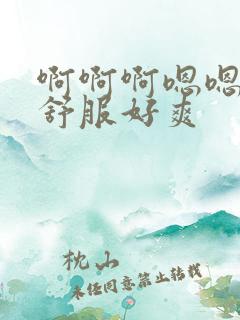 啊啊啊嗯嗯
舒服好爽
枕山
未经同意禁止转载